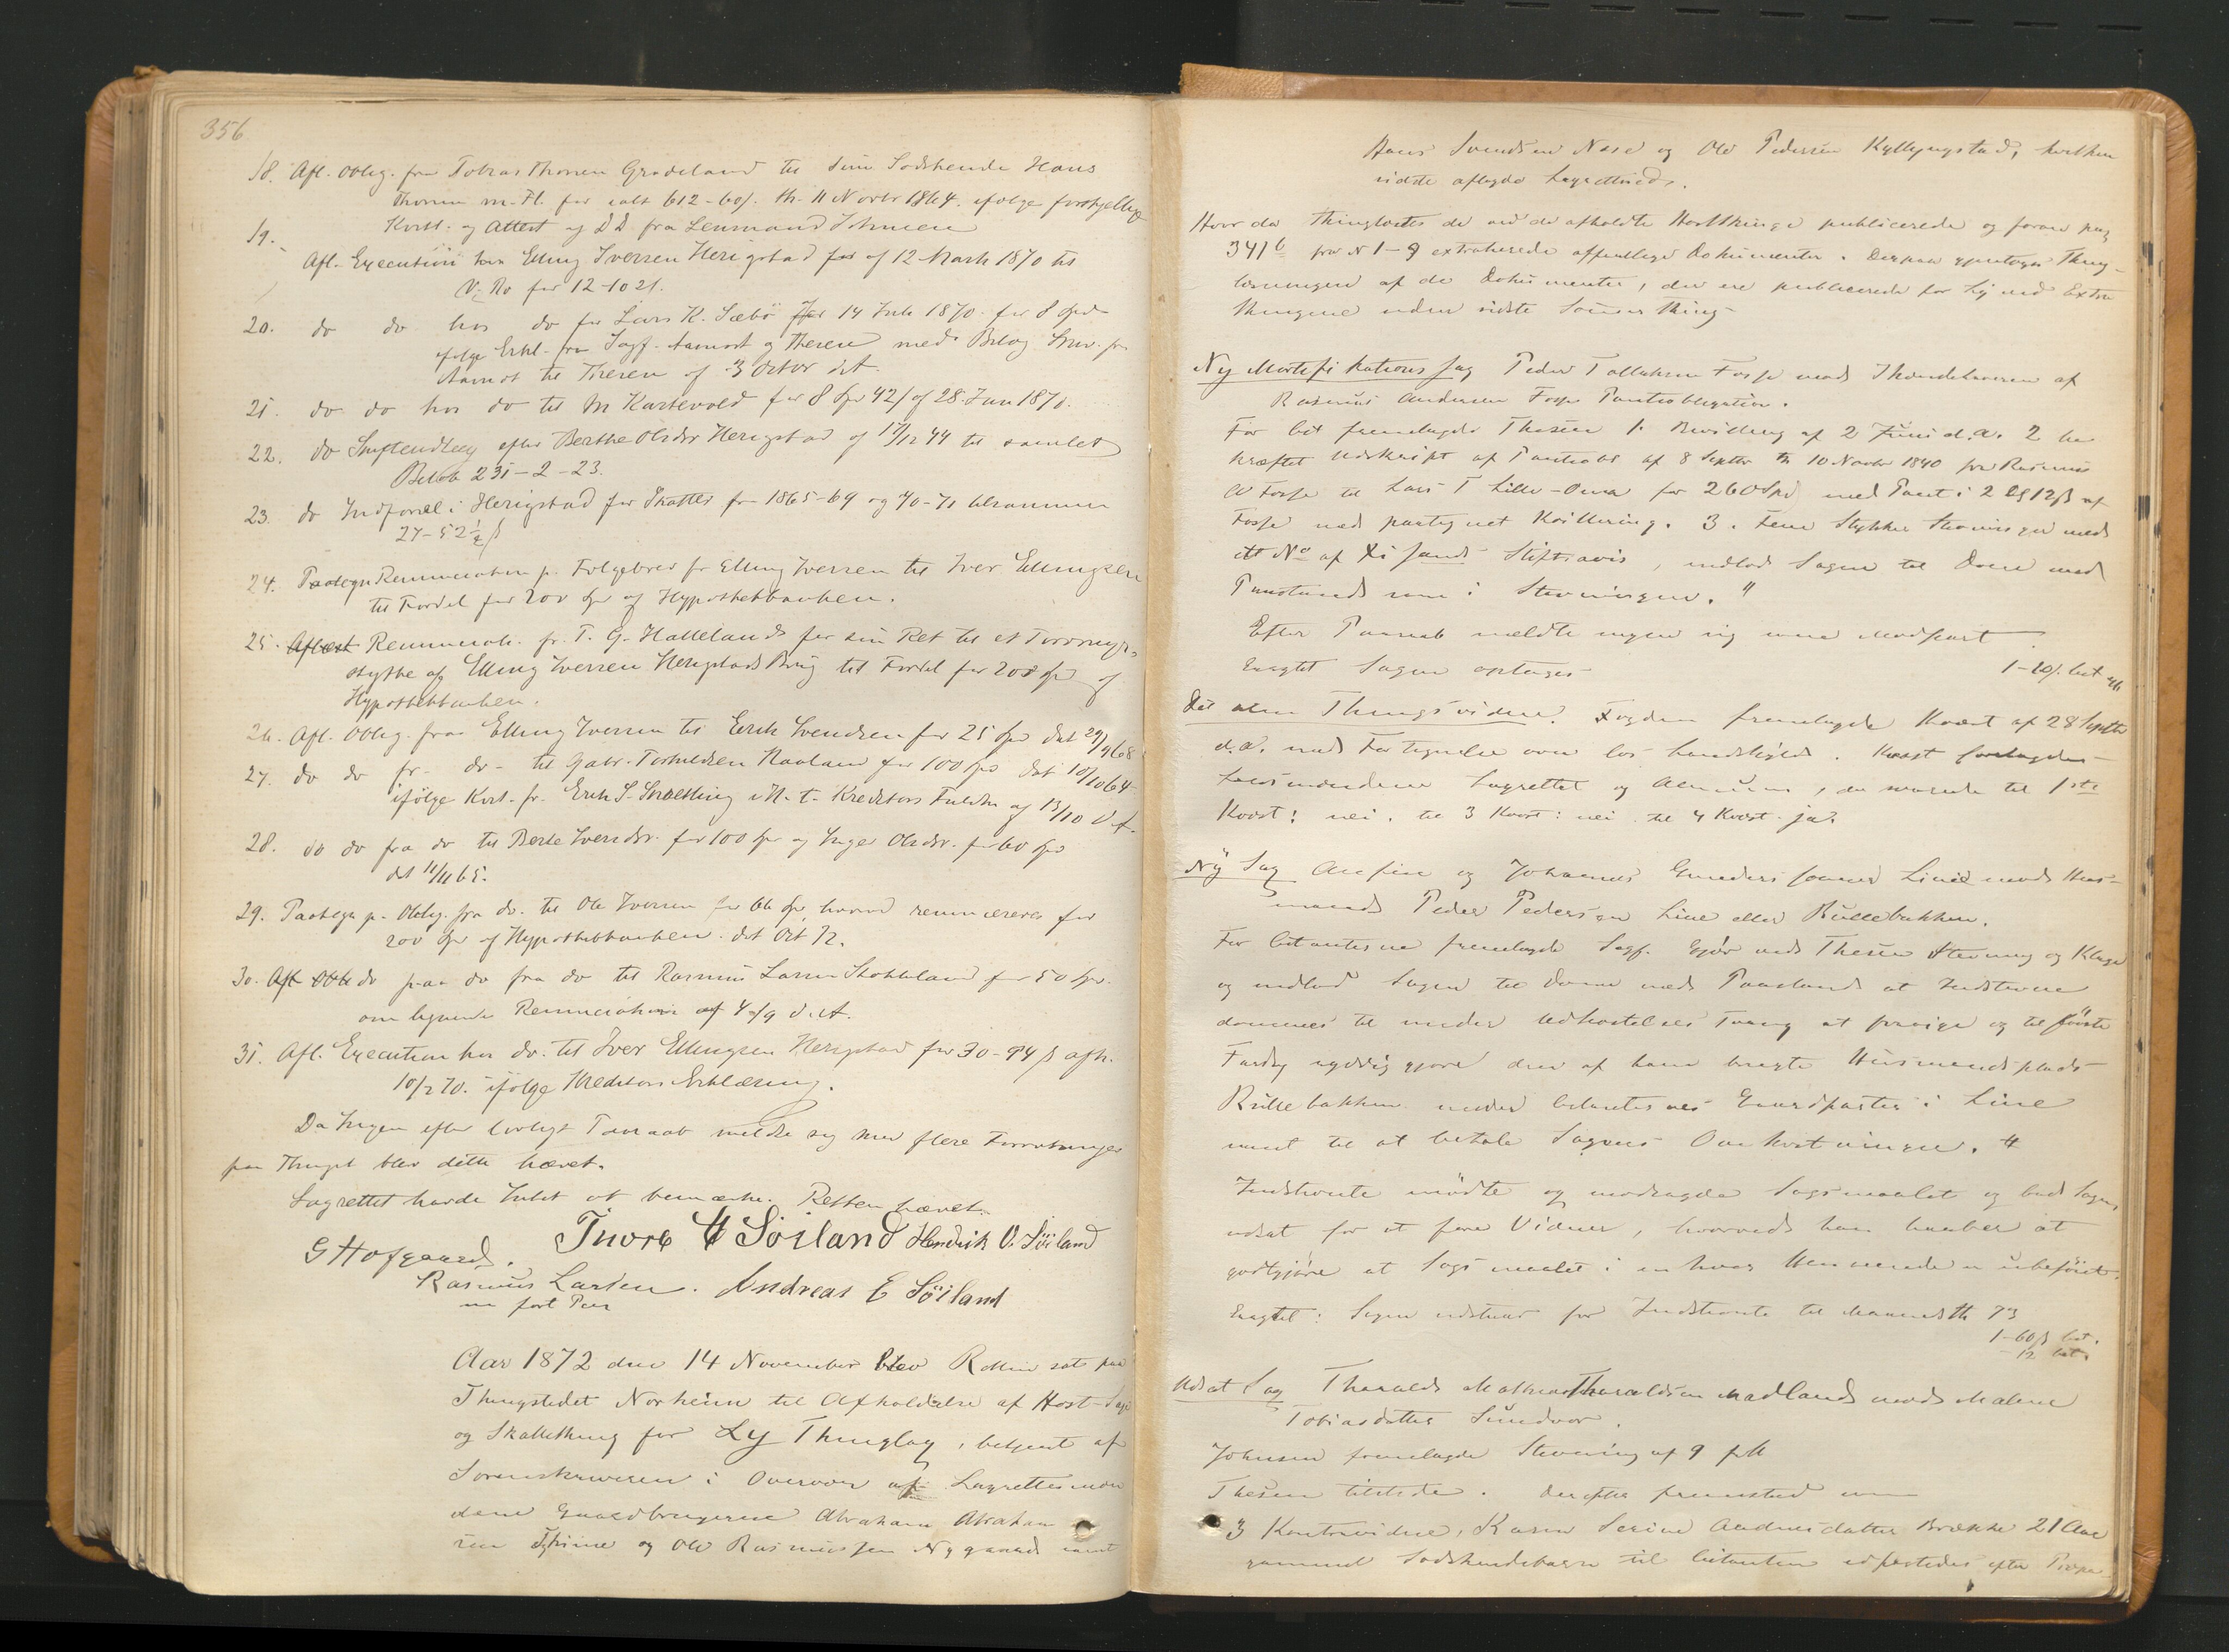 356
18. Afl. Oblig. fra Tobias Thorsen Gradeland til sine Sødskende Hans
Thorsen m. Fl. for ialt 612-60β. th. 11 Novbr 1864. ifølge forskjellige
Kvitt. og Attest af DD fra Lensmand Johnsen
19. Afl. Execution hos Elling Iversen Herigstad af 12 Marts 1870 til
for 12-1021.
20. do do hos do for Lars K. Sæbø 14 Juli 1870 for 8 Spd
ifølge Erkl. fra Sagf. Aamodt og Thesen med Bilag Skriv. fra
Aamodt til Thesen af 3 Octbr d.A.
21. do do hos do til M Kartevold for 8 Spd 42β af 28. Jun 1870.
22. do Skiftendlæg efter Berthe Olsdr Herigstad af 17/12 44 til samlet
Beløb 231-2-23.
23. do Indførsel i Herigstad for Skatter for 1865-69 og 70-71 tilsammen
27-52½β
24. Paategn Renunciation p. Følgebrev fr Elling Iversen til Iver Ellingsen
til Fordel for 200 Spd af Hypothekbanken.
25. Aflæst Renunciati. fr. T. G. Hallelands for sin Ret til et Torvmyr-
stykke af Elling Iversen Herigstads Brug til Fordel for 200 Spd af
Hypothekbanken.
26. Afl. Oblig. fra Elling Iversen til Erik Svendsen for 25 Spd dat 29/9 68
27. do do fr. do - til Gabr. Torkildsen Haaland for 100 Spd dat 10/10 64
ifølge Kvit. fr. Erik S. i N. t. Kreditors Fuldm af 13/10 d.A.
28. do do fra do til Berte Iversdr. for 100 Spd og Inger Olsdr. for 60 Spd
dat 11/11 65.
29. Paategn p. Oblig. fra do. til Ole Iversen for 66 Spd, hvorved renunceres for
200 Spd af Hypothekbanken. dat Oct 72.
30. Afl Obl do paa do fra do til Rasmus Larsen Skohkeland for 50 Spd.
om lignende Renunciation af 4/9 d.A.
31. Afl. Execution hos do. til Iver Ellingsen Herigstad for 30-94β afh.
10/2 70. ifølge Kreditors Erklæring.
Da Ingen efter lovligt Paaraab meldte sig med flere Forretninger
paa Thinget blev dette hævet.
Lagrettet havde Intet at bemærke. Retten hævet.
G Hofgaard. Tnore H Söiland Hendrik O. Söiland
Rasmus Larsen. Andreas E Söiland
m fört Pen
Aar 1872 den 14 November blev Retten sat paa
Thingstedet Norheim til Afholdelse af Høst-Sage
og Skattething for Ly Thinglag, betjent af
Sorenskriveren i Overvær af Lagrettesmæn
dene Gaardbrugerne Abraham Abraham
sen Thime og Ole Rasmussen Nygaard samt
Hans Svendsen Næse og Ole Pedersen Kyllingstad, hvilken
sidste aflagde Lagrettesed.
Hvor da thinglæstes de ved de afholdte Høstthinge publicerede og foran pag
341 fra N 1-9 extraherede offentlige Dokumenter. Derpaa foretoges Thing-
læsningen af de Dokumenter, der ere publicerede for Ly ved Extra
thingene siden sidste Sommerthing
Ny Mortifikations Sag Peder Tollaksen Fosse mod Ihændehaveren af
Rasmus Andersen Fosse Pantobligation.
For Cit fremlagde Thesen 1. Bevilling af 2 Juni d.A. 2 be
kræftet Udskrift af Pantobl af 8 Septbr th 10 Novbr 1840 fra Rasmus
A Fosse til Lars T Lille-Oma for 260 Spd med Pant i 2 12β af
Fosse med paategnet Kvittering. 3. Fem Stykker Stevninger med
et No af Xi sands Stiftsavis, indlod Sagen til Doms med
Paastand som i Stevningen. "
Efter Paaraab meldte ingen sig som Modpart
Eragtet Sagen optages
1-20β. bet
Det alm Thingsvidne. Fogden fremlagde Kvæst af 28 Septbr
d.A. med Fortegnelse over løs handstighed. Kvæst forelagdes
Lensmændene Lagrettet og Almuen, der svarede til 1ste
Kvæst: nei. til 3 Kvæst: nei til 4 Kvæst. ja.
Ny Sag Anfin og Johannes Gunders sønner Line mod Hus-
mand Peder Pedersen Line eller Rullebakken.
For Citanterne fremlagde Sagf. ved Thesen Stevning og Klage
og indlod Sagen til Doms med Paastand at Indstevnte
dømmes til under Udkastelses Tvang at fravige og til første
Fardag ryddiggjøre den af ham brugte Husmandsplads
Rullebakken under Citanternes Gaardparter i Line
samt til at betale Sagens Omkostninger. "
Indstevnte mødte og modsagde Sagsmaalet og bad Sagen
udsat for at føre Vidner, hvorved han haaber at
godtgjøre at Sagsmaalet i enhver Henseende er ubeføiet.
Eragtet: Sagen udstaar for Indstevnte til 73
1-60β bet.
-12 bet.
Udsat Sag Tharalds Mathias Tharaldsen Madland mod Malene
Tobiasdatter Sundvor.
Johnsen fremlagde Stevning af 9
Thesen tilstede. Derefter fremstod som
3 Kontravidne, Karen Serine Andersdatter Brække 21 Aar
gammel Sødskendebarn til Citanten edfæstedes efter